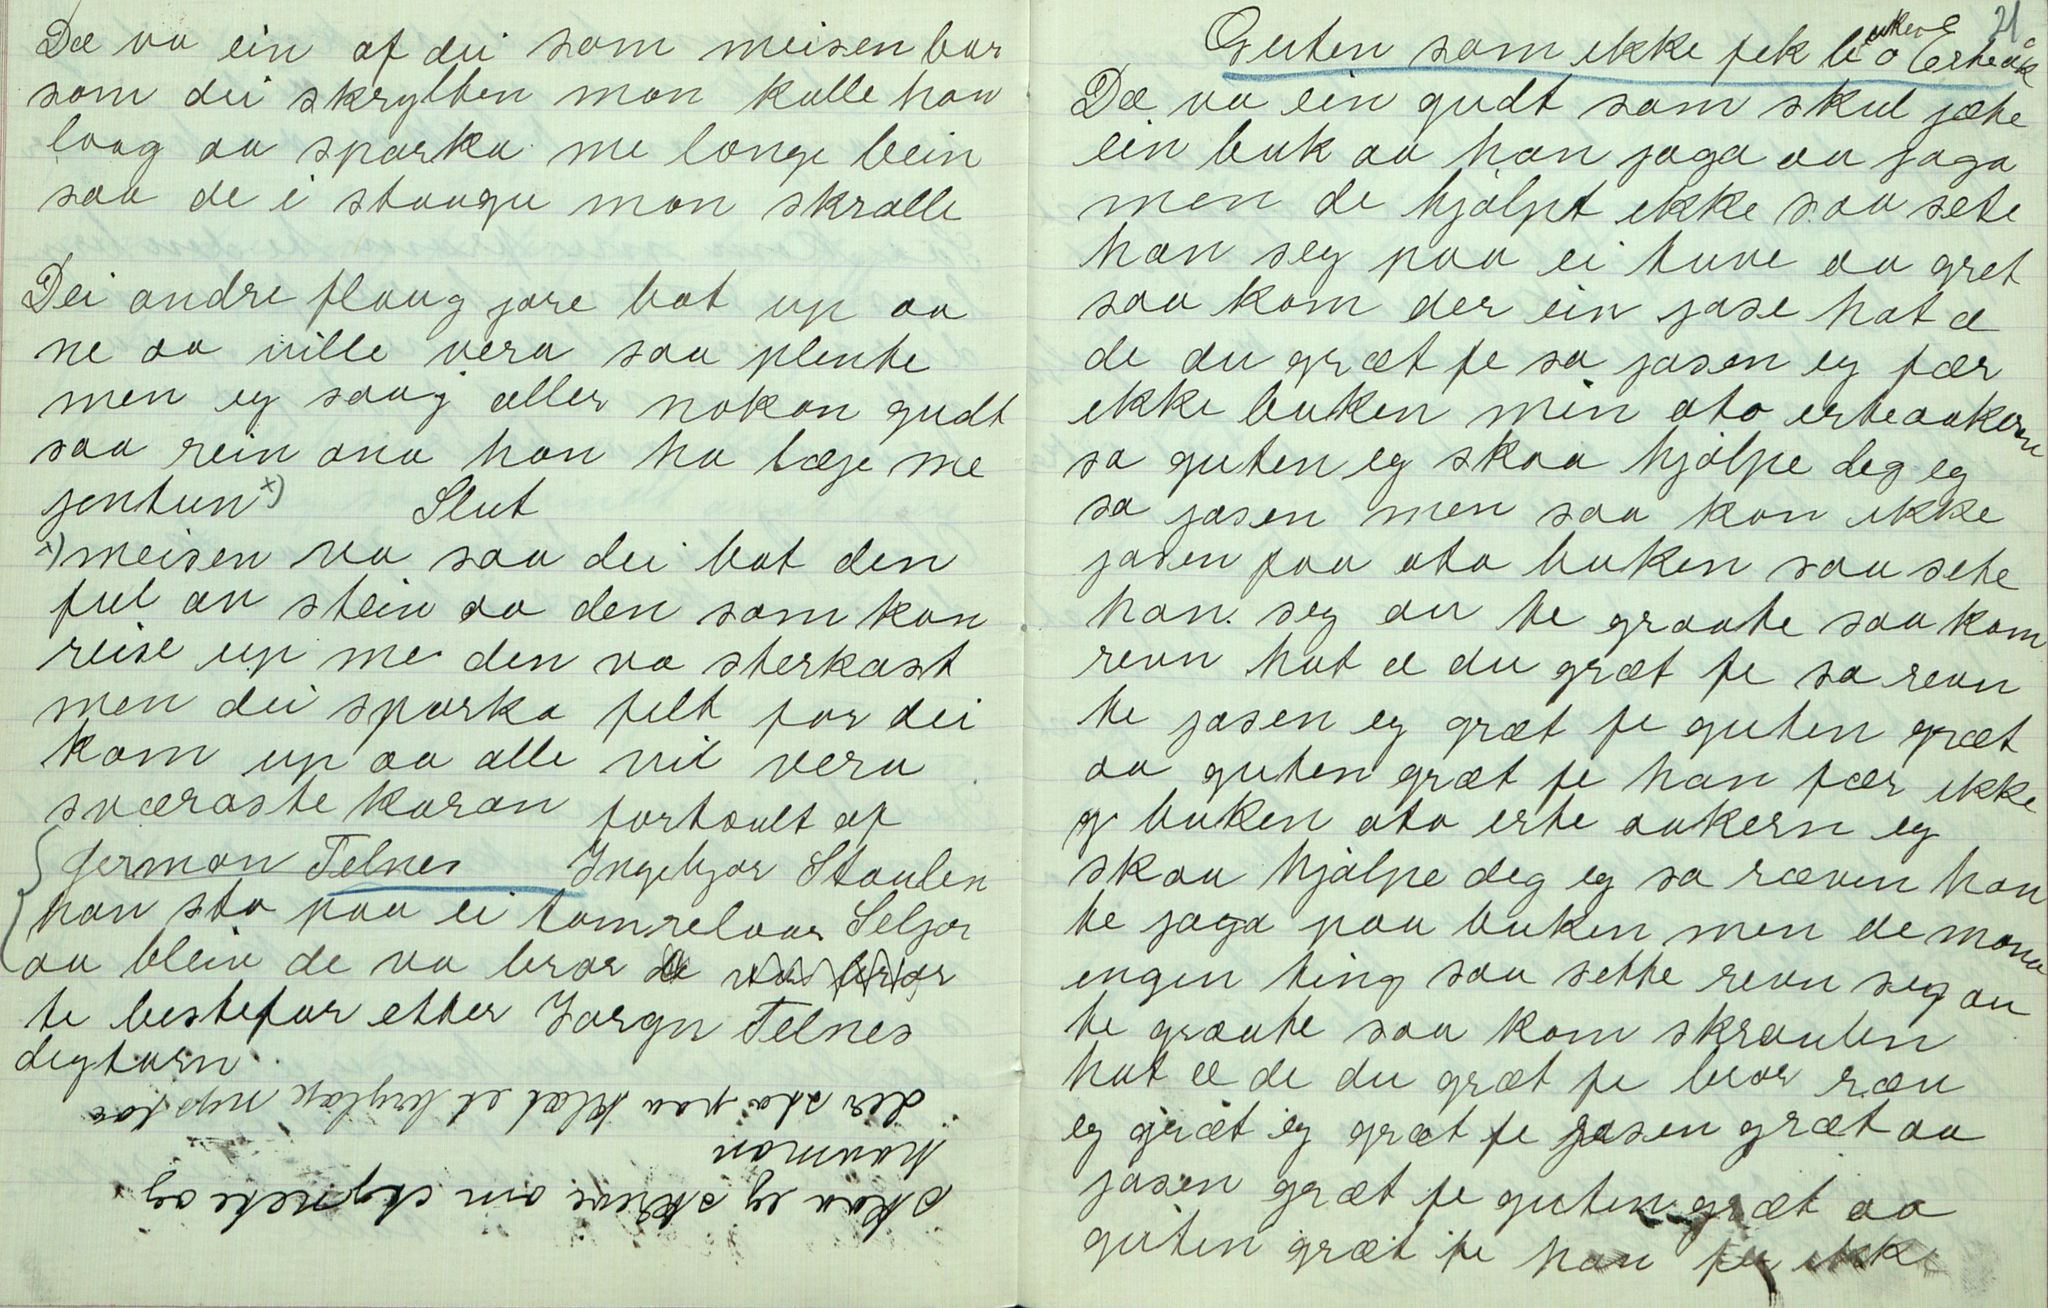 Dæ va ein af dei som meisen bar
som dei skrylten mon kalle han
laag aa sparka me lange bein
saa de i staagu mon skralle
Dei andre flaug jore bat up aa
ne aa ville vera saa plente
men eg saag aller nokon gudt
saa rein ana han ha læje me
jentun x) Slut
x) meisen va saa dei bat den
ful av stein aa den som kan
reise up me den va sterkast
men dei sparka felt for dei
kom up aa alle vil vera
sværaste karan fortault af
Jermon Telnes Ingebjor Staulen
han sto paa ei tomrelaav Seljor
aa bleiv de va bror
te bestefar etter Jorgn Telnes
degtarn
skaa eg skrive om
hauman
der sto paa
Guten som ikke fek buken o Erteåk
21
Dæ va ein gudt som skul jæte
ein buk aa han jaga aa jaga
men de hjalpt ikke saa sete
han seg paa ei tuve aa gret
saa kom der ein jase hat æ
de du græt fe sa jasen eg fær
ikke buken min ato erteaakeren
sa guten eg skaa hjalpe deg eg
sa jasen men saa kon ikke
jasen faa ato buken saa sete
han seg au te graate saa kom
revn hat æ du græt fe sa revn
te jasen eg græt fe guten græt
aa guten græt fe han fær ikke
buken ato erte aakern eg
skaa hjalpe deg eg sa ræven han
te jaga paa buken men de mona
engen ting saa sette revn seg au
te graate saa kom skrauten
hat æ de du græt fe bror ræv
eg græt eg græt fe jasen græt aa
jasen græt fe guten græt aa
guten græt fe han fer ikk